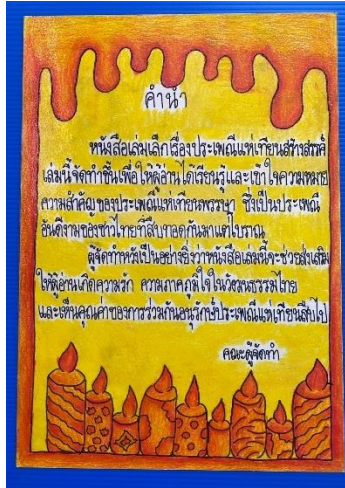 คำนำ
หนังสือเล่มเล็กเรื่องประเพณีแห่เทียนสร้างสรรค์
เล่มนี้จัดทำขึ้นเพื่อให้ผู้อ่านได้เรียนรู้และเข้าใจความหมาย
ความสำคัญของประเพณีแห่เทียนพรรษา ซึ่งเป็นประเพณี
อันดีงามของชาวไทยที่สืบทอดกันมาแต่โบราณ
ผู้จัดทำหวังเป็นอย่างยิ่งว่าหนังสือเล่มนี้จะช่วยส่งเสริม
ให้ผู้อ่านเกิดความรัก ความภาคภูมิใจในวัฒนธรรมไทย
และเห็นคุณค่าของการร่วมกันอนุรักษ์ประเพณีแห่เทียนสืบไป
คณะผู้จัดทำ